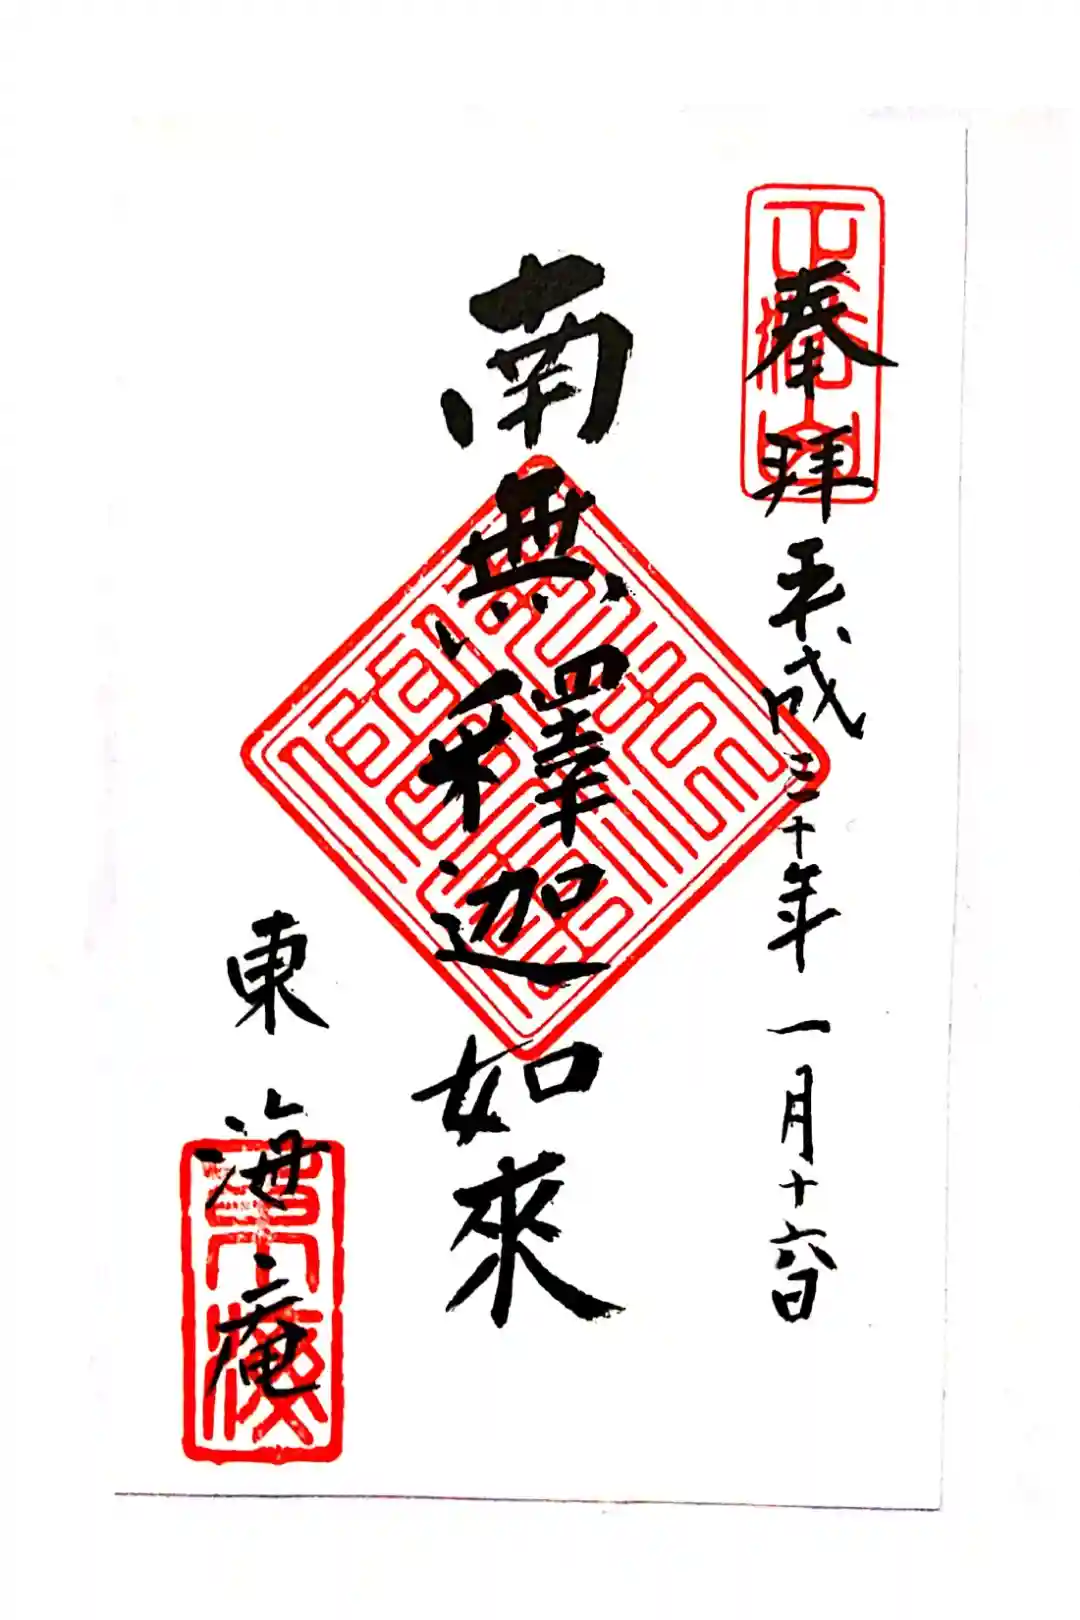 奉拜 平成三十年 一月十六日
南無釋迦如來
東海庵